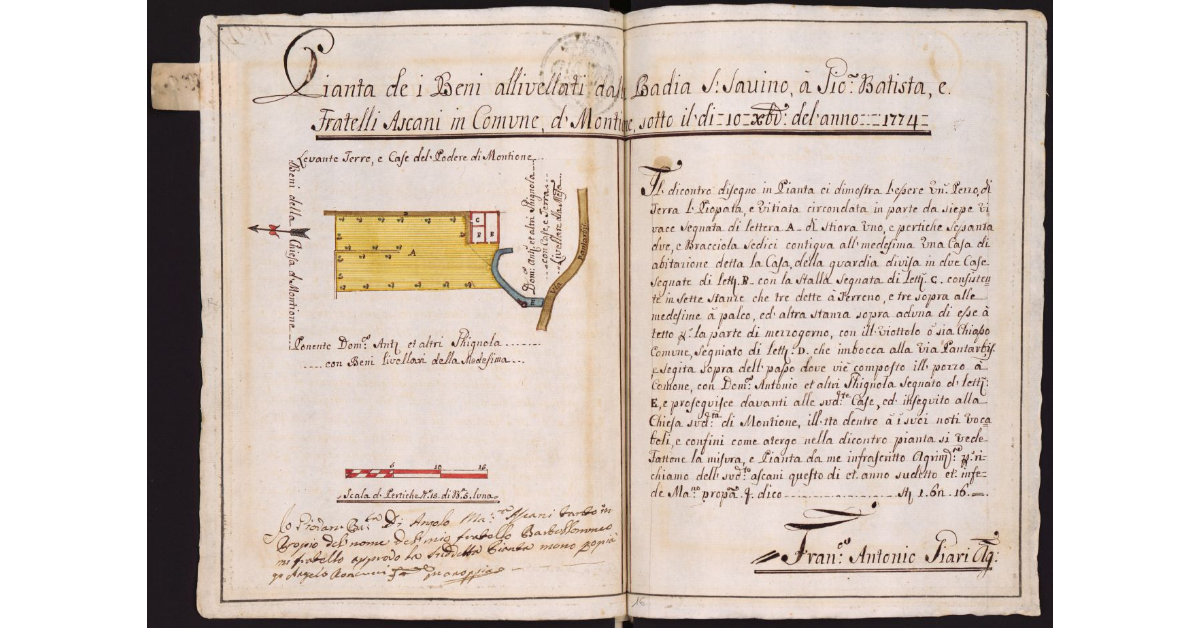 Pianta de i Beni allivellati dala Badia S: Savino, à Gio: Batista, e.
Fratelli Ascani in Comvne, d' Montione, sotto il di = 10 = xbr: del anno = 1774 =
Levante Terre, e Case del Podere di Montione
Beni della Chiesa d' Montione
A
B
B
C
E
Dom: Ant: et altri Shignola
con Case, e Terra
Livellare della Mede:
Via Pantarbis
Ponente Dom: Ant: et altri Shignola
con Beni livellari della Modesima
5 10 15
Scala d' Pertiche N: 15. di Br: 5. luna
Io Giovan Bat: D: Angolo Ma: Ascani
del nome del mio fratello Bartolommeo
mi fratello approvo la suddetta Pianta mano
Il dicontro disegno in Pianta ci dimostra l'essere Vn: Pezzo, di
Terra l: Piopata, e Vitiata circondata in parte da siepe vi
vace segnata di lettera A. di Stiora Vno, e pertiche sepanta
dve, e Bracciola Sedici contigua all: medesima Vna Casa di
abitazione detta la Casa, della guardia divisa in due Case.
segnate di lett: B. con la stalla segnata di lett: C. consisten
te in sette stanze che tre dette à Terreno, e tre sopra alle
medesime à palco, ed altra stanza sopra advna di esse à
tetto p: la parte di mezzogorno, con ill: viottolo ò sia Chiapo
Comvne, segniato di lett: D. che imbocca alla via Pantarbis.
e segita sopra dell: papo dove viè composto ill: pozzo à
Comone, con Dom: Antonio et altri Shignola segnato d' lett:
E, e proseguisce davanti alle svd:te Case, ed: inseguito alla
Chiesa svd:ta di Montione, ill: tto dentro à i svoi noti voca
boli, e confini come atergo nella dicontro pianta si vede
Fattone la misura, e Pianta da me infrascritto Agrim:re p: ri=
chiamo dell: svd:to ascani questo di et: anno sudetto et: infe=
de Ma:no propa: q: dico st: 1. 62. 16. =
Fran:co Antonio Giari Ag: